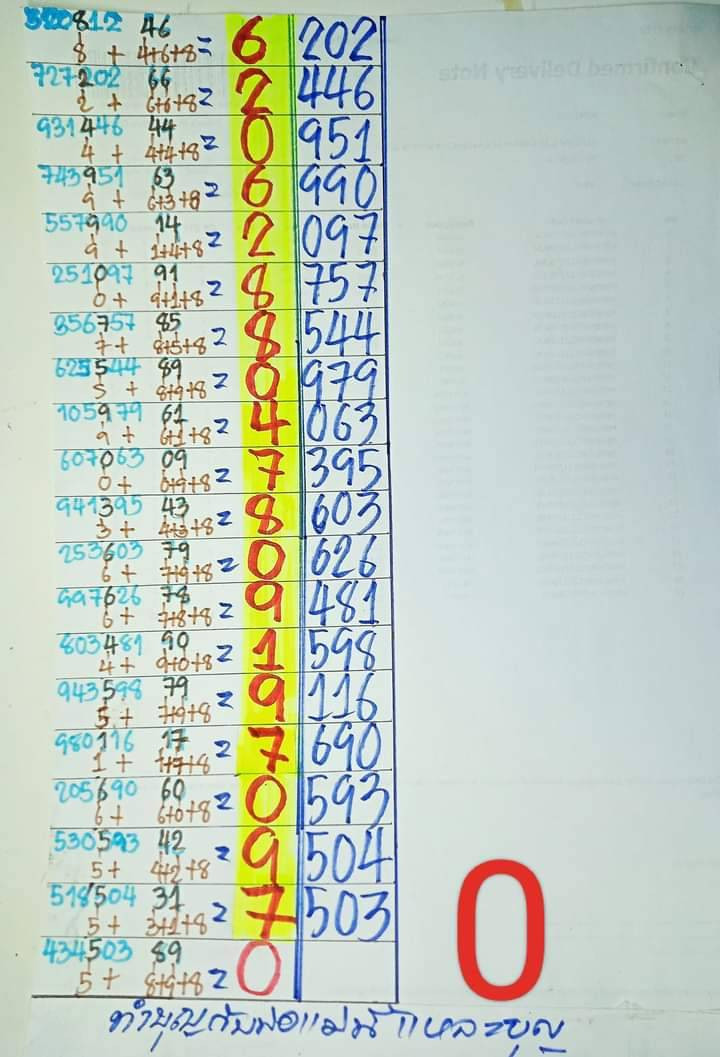 520812 46
8 + 4+6+8 = 6 202
727202 66
2 + 6+6+8 = 2 446
931446 44
4 + 4+4+8 = 0 951
743951 63
9 + 6+3+8 = 6 990
557990 14
9 + 1+4+8 = 2 097
251097 91
0 + 9+1+8 = 8 757
356757 85
7 + 8+5+8 = 8 544
625544 89
5 + 8+9+8 = 0 979
105979 61
9 + 6+1+8 = 4 063
607063 09
0 + 0+9+8 = 7 395
941395 43
3 + 4+3+8 = 8 603
253603 79
6 + 7+9+8 = 0 626
997626 78
6 + 7+8+8 = 9 481
803481 90
4 + 9+0+8 = 1 598
943598 79
5 + 7+9+8 = 9 116
980116 17
1 + 1+7+8 = 7 690
205690 60
6 + 6+0+8 = 0 593
530593 42
5 + 4+2+8 = 9 504
518504 31
5 + 3+1+8 = 7 503
434503 89
5 + 8+9+8 = 0
0
ทำบุญกับพ่อแม่นี่แหละบุญ
Confirmed Delivery Note